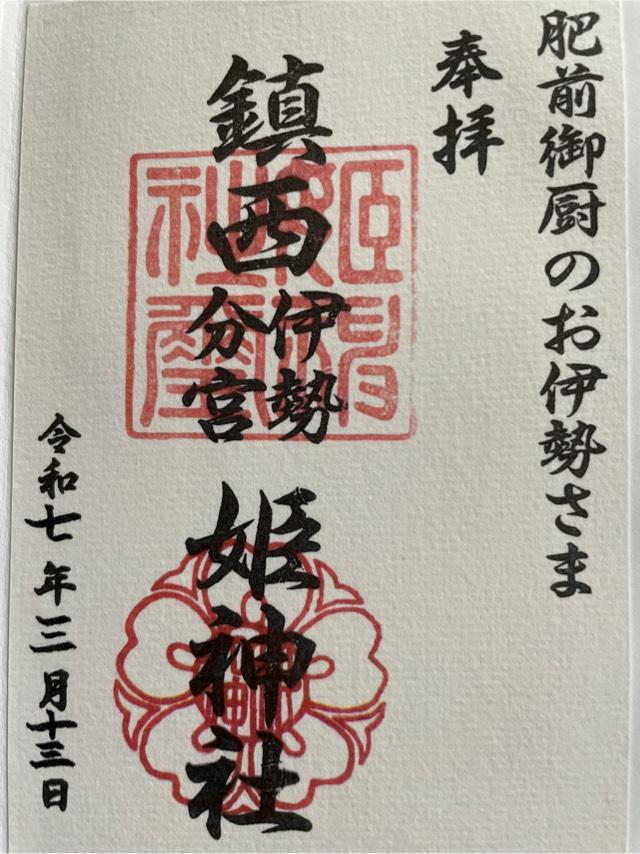 肥前御厨のお伊勢さま
奉拝
鎮西
伊勢
分宮
姫神社
令和七年三月十三日